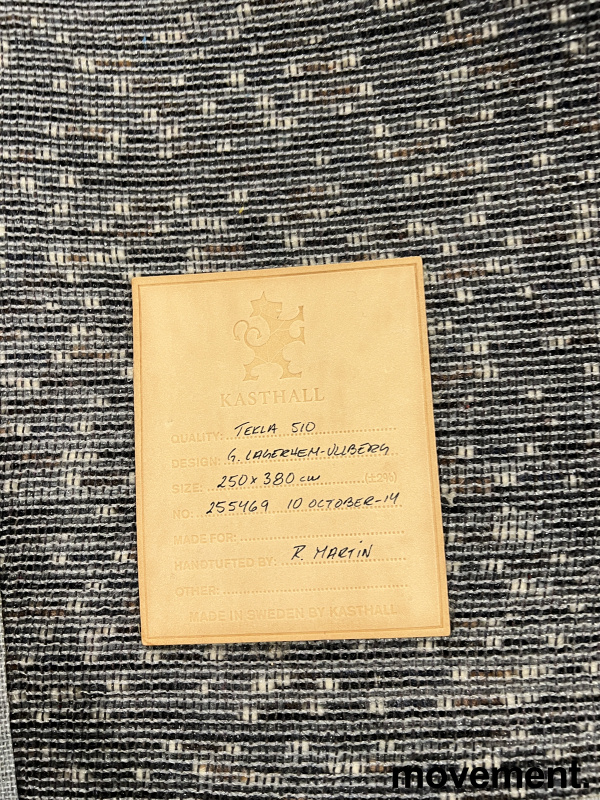 KASTHALL
QUALITY: TEKLA 510
DESIGN: G. LAGERHEM-ULLBERG
SIZE: 250 x 380 cm (±2%)
NO: 255469 10 OCTOBER-14
MADE FOR:
HANDTUFTED BY: R. MARTIN
OTHER:
MADE IN SWEDEN BY KASTHALL
movement.